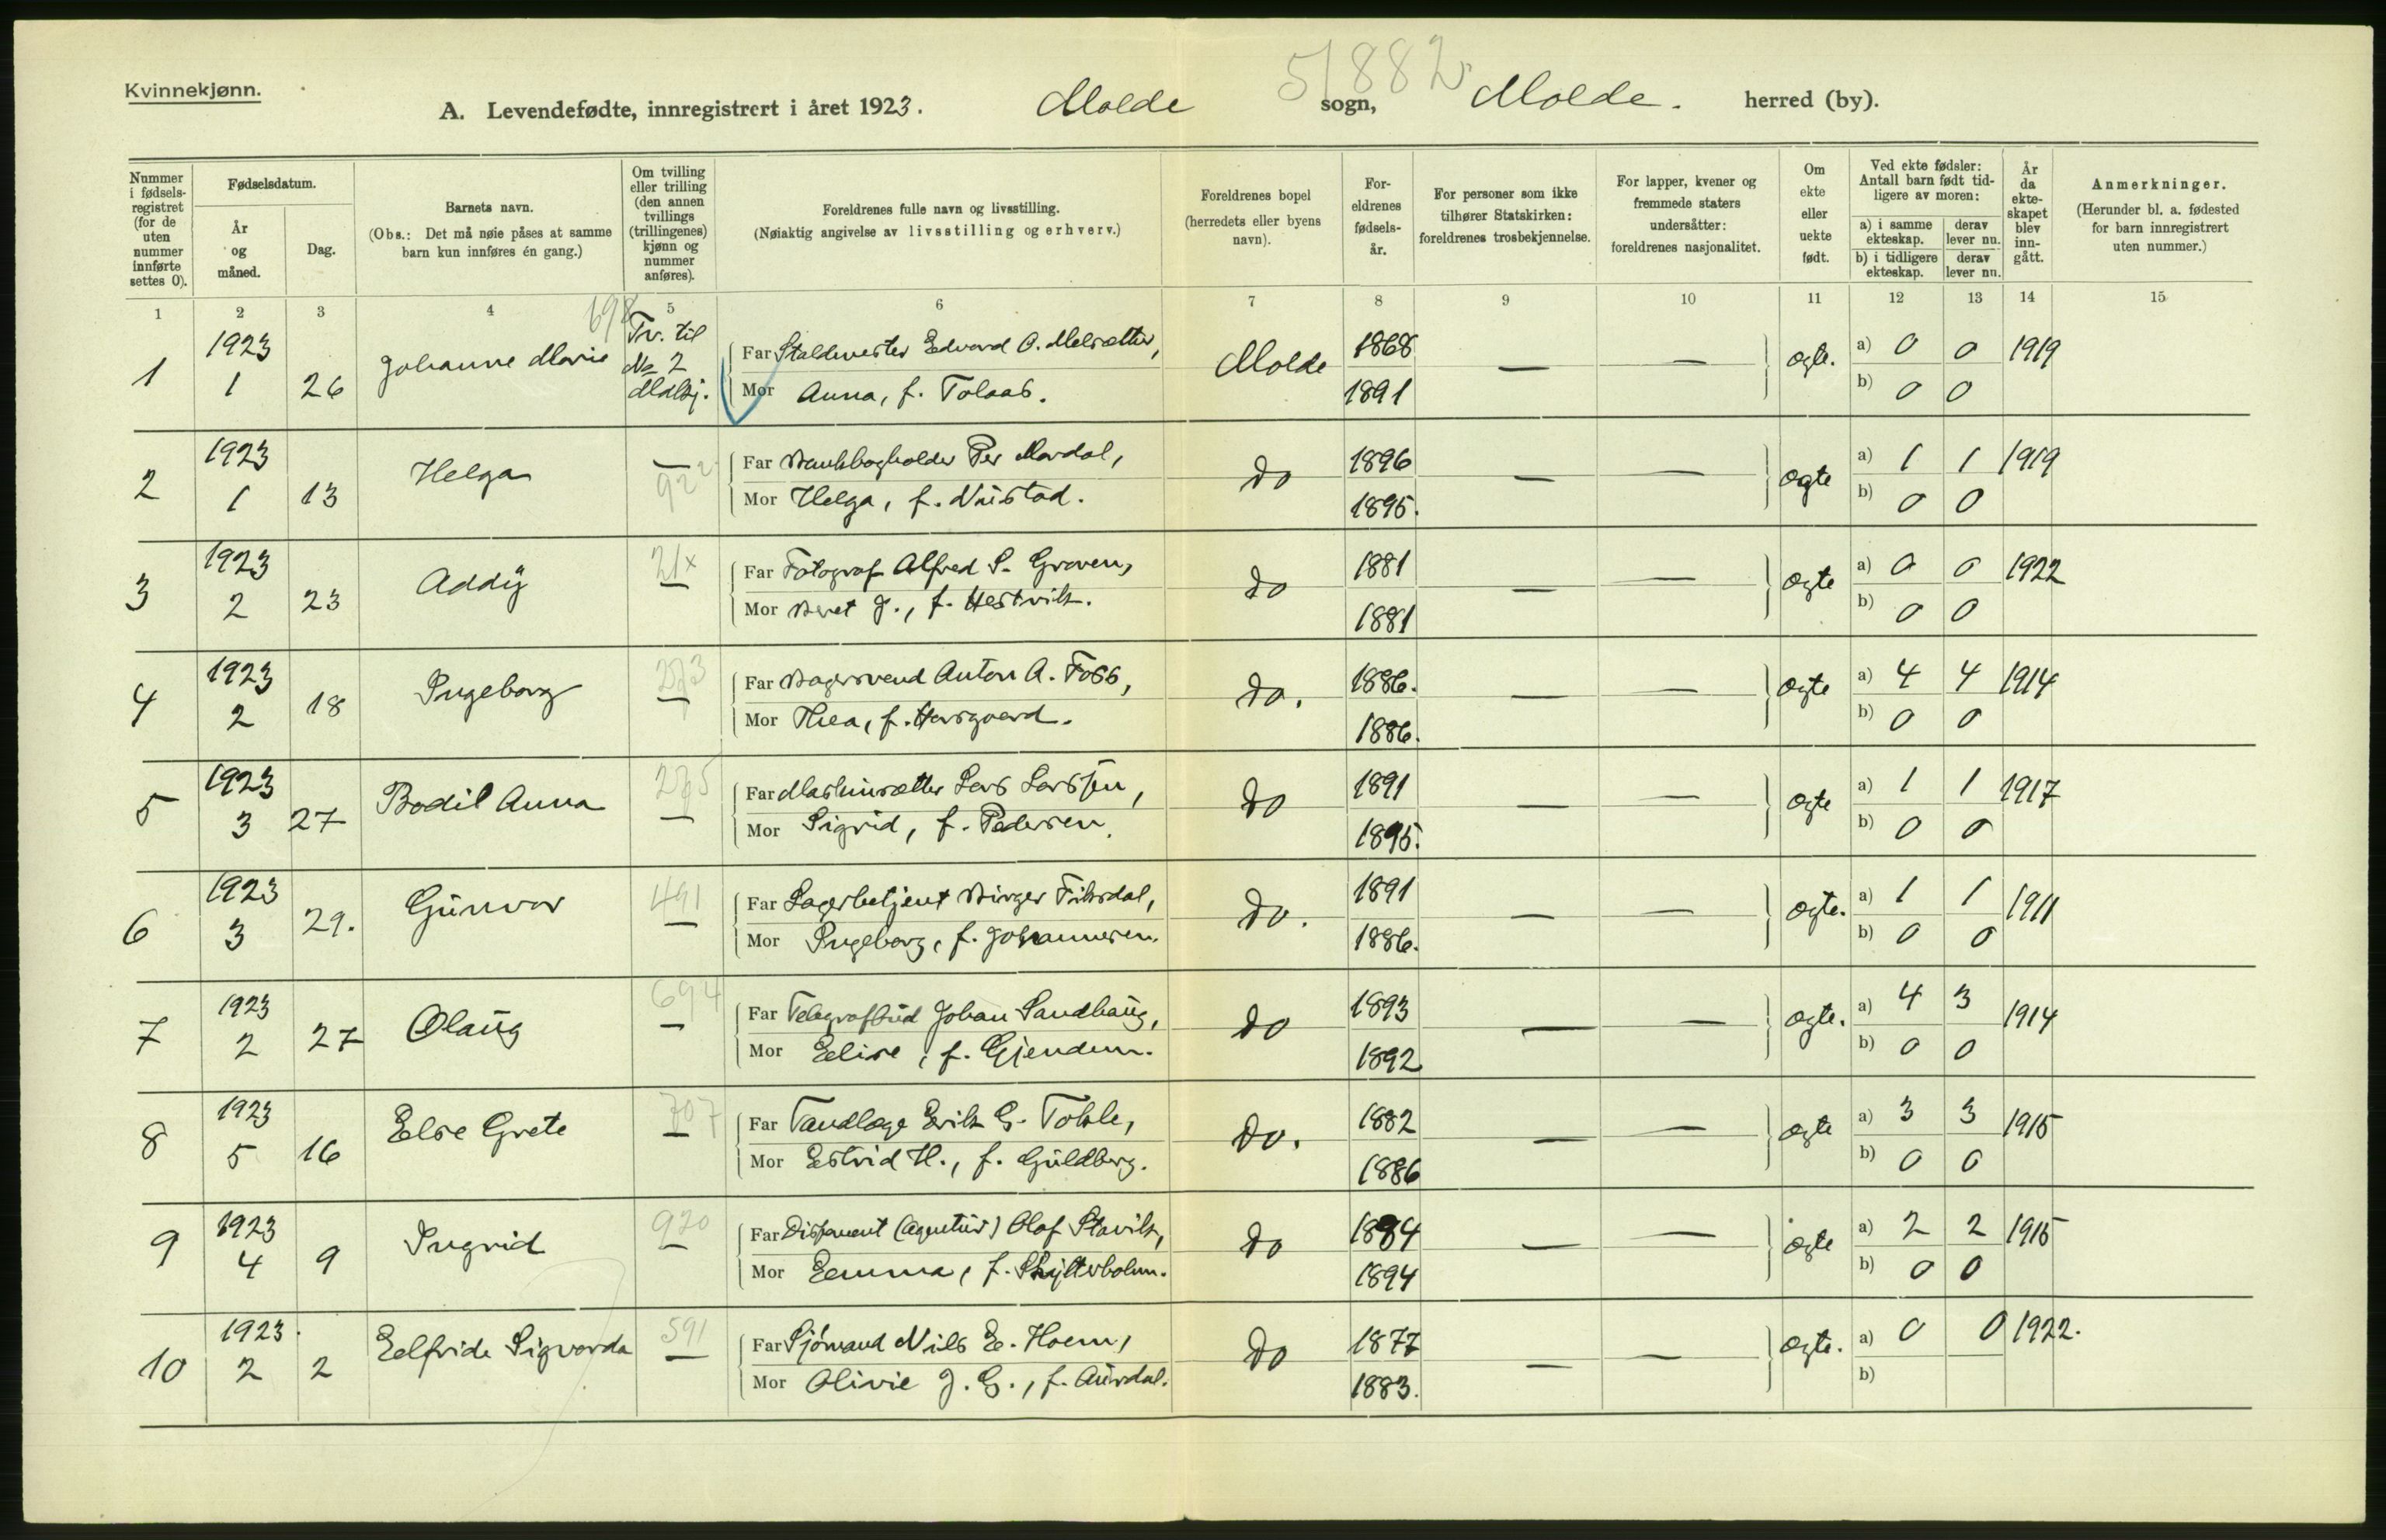 Kvinnekjønn.
51882
A. Levendefødte, innregistrert i året 1923. Molde sogn, Molde. herred (by).
Nummer i fødselsregistret (for de uten nummer innførte settes 0).
Fødselsdatum.
År og måned.
Dag.
Barnets navn.
(Obs.: Det må nøie påses at samme barn kun innføres én gang.)
Om tvilling eller trilling (den annen tvillings (trillingenes) kjønn og nummer anføres).
Foreldrenes fulle navn og livsstilling.
(Nøiaktig angivelse av livsstilling og erhverv.)
Foreldrenes bopel (herredets eller byens navn).
Foreldrenes fødselsår.
For personer som ikke tilhører Statskirken: foreldrenes trosbekjennelse.
For lapper, kvener og fremmede staters undersåtter: foreldrenes nasjonalitet.
Om ekte eller uekte født.
Ved ekte fødsler: Antall barn født tidligere av moren:
a) i samme ekteskap. derav lever nu.
b) i tidligere ekteskap. derav lever nu.
År da ekteskapet blev inngått.
Anmerkninger.
(Herunder bl. a. fødested for barn innregistrert uten nummer.)
1 2 3 4 5 6 7 8 9 10 11 12 13 14 15
698
1 1923 1 26 Johanne Marie Tv. til No 2 Mdlkj. Far Staldmester Edvard O. Melsætter, Molde 1868 — — ogte. a) 0 0 1919
Mor Anna, f. Tolaas. 1891 b) 0 0
2 1923 1 13 Helga — 922 Far Bankbogholder Per Mordal, do 1896 — — ogte a) 1 1 1919
Mor Helga, f. Nüstad. 1895. b) 0 0
3 1923 2 23 Addÿ 21x — Far Fotograf Alfred S. Groven, do 1881 — — ogte a) 0 0 1922
Mor Beret J., f. Hestvik. 1881 b) 0 0
4 1923 2 18 Ingeborg 273 — Far Bagersvend Anton A. Foss, do. 1886. — — ogte a) 4 4 1914
Mor Thea, f. Horsgaard. 1886. b) 0 0
5 1923 3 27 Bodil Anna 275 — Far Maskinsætter Lars Larssen, do 1891 — — ogte a) 1 1 1917
Mor Sigrid, f. Pedersen. 1895. b) 0 0
6 1923 3 29. Günvor 491 — Far Lagerbetjent Birger Fiksdal, do. 1891 — — ogte. a) 1 1 1911
Mor Ingeborg, f. Johannesen. 1886. b) 0 0
7 1923 2 27 Olaüg 694 — Far Telegrafbüd Johan Sandhaüg, do 1893 — — ogte. a) 4 3 1914
Mor Elise, f. Gjendem. 1892 b) 0 0
8 1923 5 16 Else Grete 707 — Far Tandlæge Erik G. Tokle, do. 1882 — — ogte a) 3 3 1915
Mor Estrid H., f. Güldberg. 1886 b) 0 0
9 1923 4 9 Ingrid 920 — Far Disponent (Agentür) Olaf Stavik, do 1884 — — ogte a) 2 2 1915
Mor Emma, f. Skytterholm. 1894 b) 0 0
10 1923. 2 2 Elfride Sigvarda 591 — Far Sjömand Nils E. Hoem, do 1877 — — ogte. a) 0 0 1922.
Mor Olivie J. G., f. Aürdal. 1883. b)